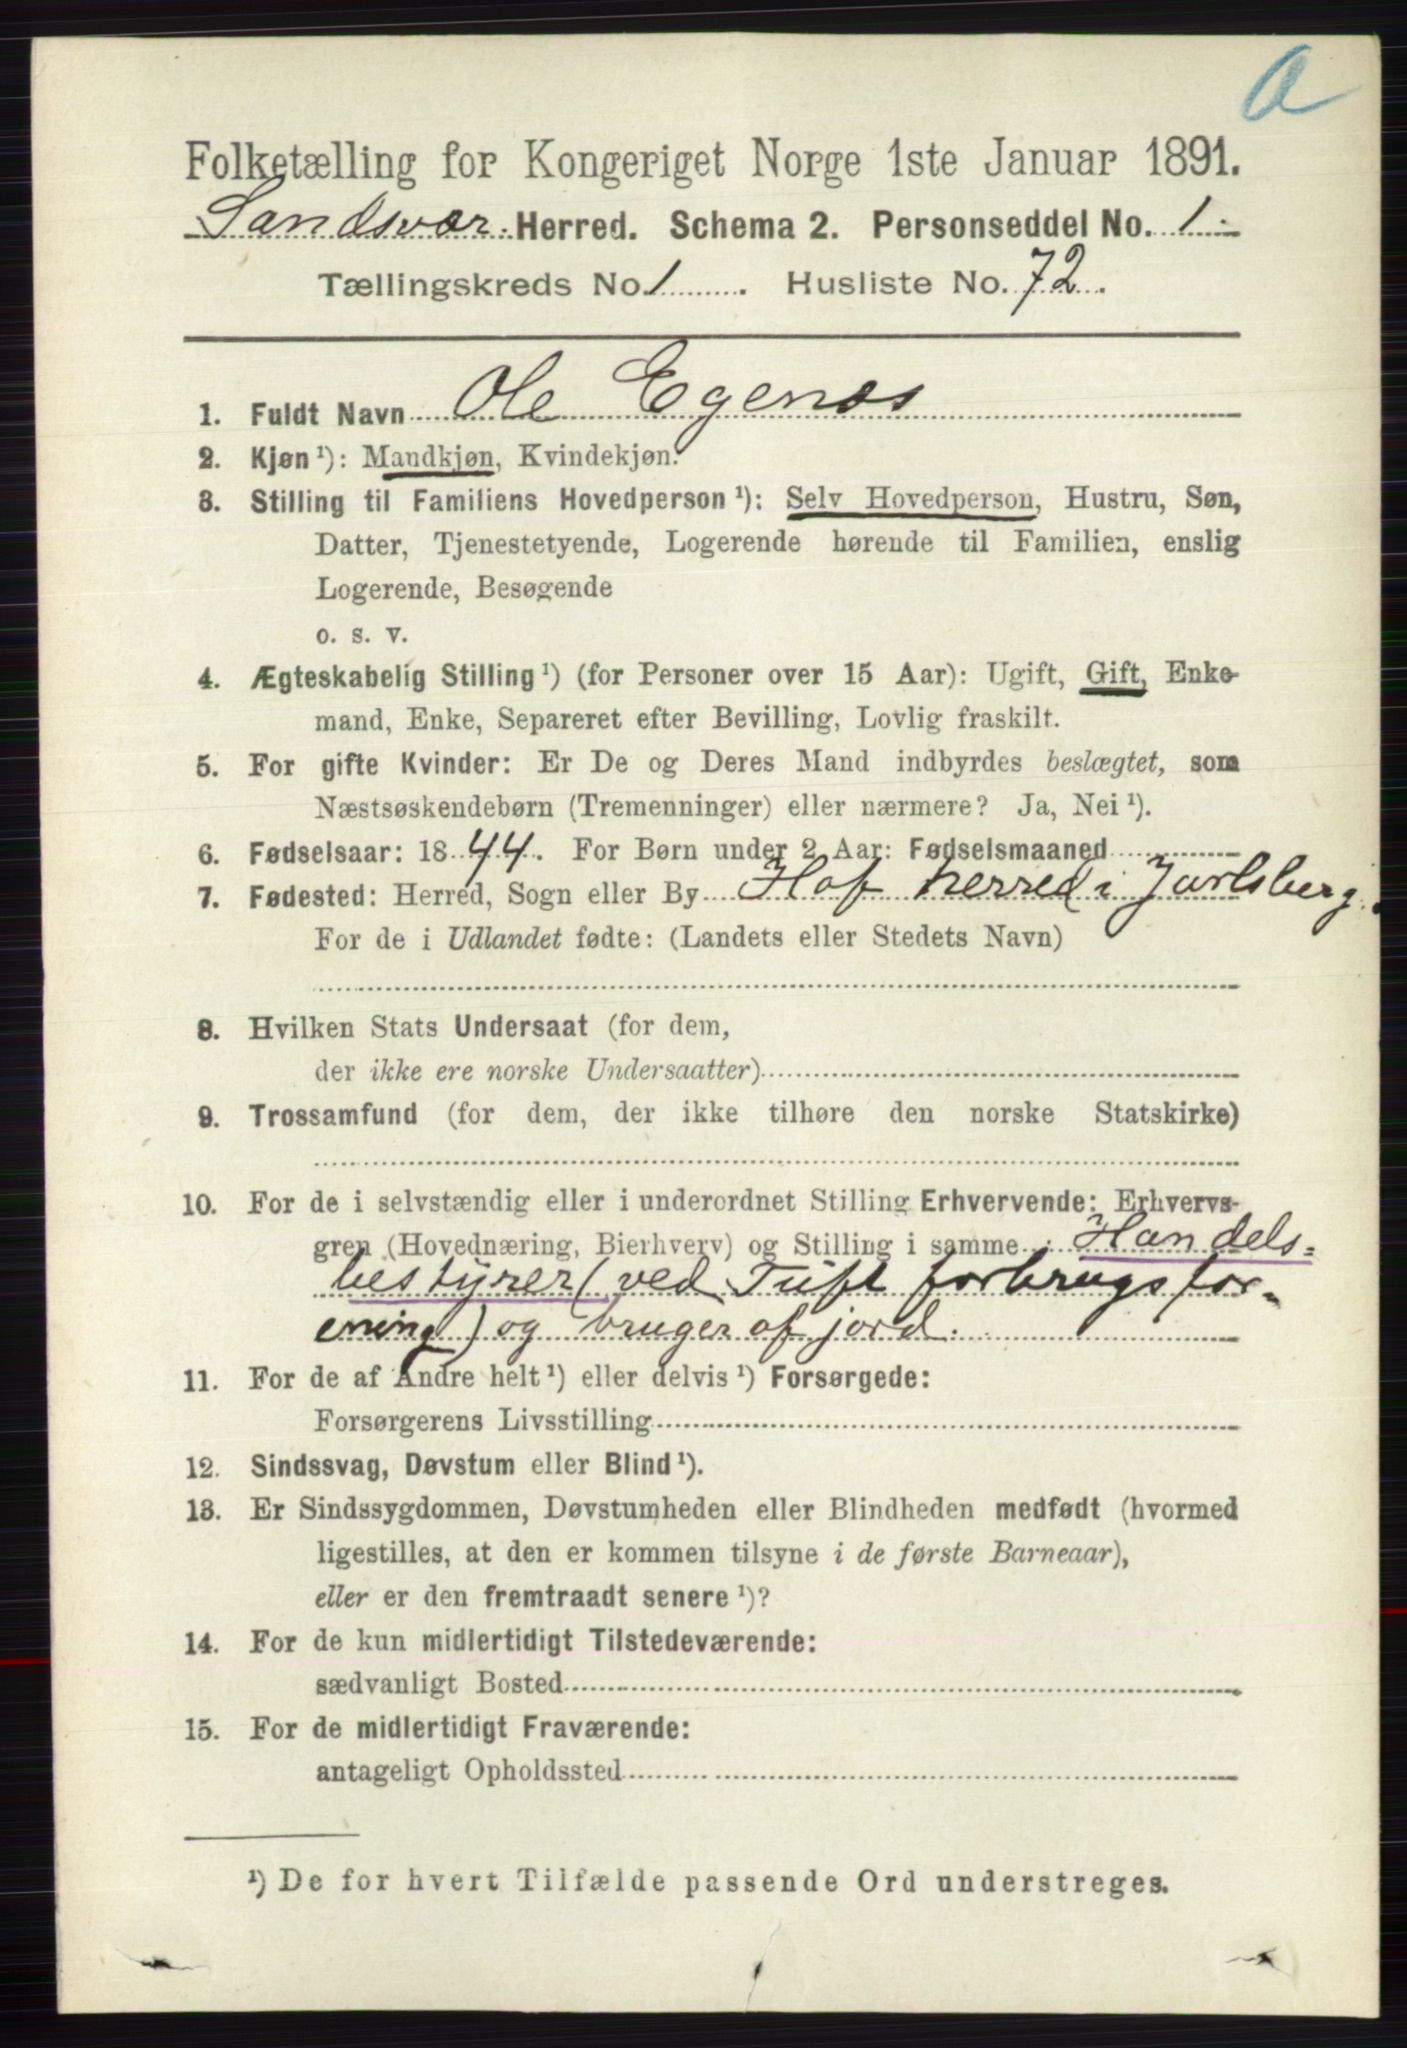 a
Folketælling for Kongeriget Norge 1ste Januar 1891.
Sandsvær Herred. Schema 2. Personseddel No. 1
Tællingskreds No. 1. Husliste No. 72.
1. Fuldt Navn Ole Egenæs
2. Kjøn¹): Mandkjøn, Kvindekjøn.
3. Stilling til Familiens Hovedperson¹): Selv Hovedperson, Hustru, Søn,
Datter, Tjenestetyende, Logerende hørende til Familien, enslig
Logerende, Besøgende
o. s. v.
4. Ægteskabelig Stilling¹) (for Personer over 15 Aar): Ugift, Gift, Enke-
mand, Enke, Separeret efter Bevilling, Lovlig fraskilt.
5. For gifte Kvinder: Er De og Deres Mand indbyrdes beslægtet, som
Næstsøskendebørn (Tremenninger) eller nærmere? Ja, Nei¹).
6. Fødselsaar: 1844. For Børn under 2 Aar: Fødselsmaaned
7. Fødested: Herred, Sogn eller By Hof herred i Jarlsberg.
For de i Udlandet fødte: (Landets eller Stedets Navn)
8. Hvilken Stats Undersaat (for dem,
der ikke ere norske Undersaatter)
9. Trossamfund (for dem, der ikke tilhøre den norske Statskirke)
10. For de i selvstændig eller i underordnet Stilling Erhvervende: Erhvervs-
gren (Hovednæring, Bierhverv) og Stilling i samme: Handels-
bestyrer (ved Tuft forbrugsfor-
ening) og bruger af jord.
11. For de af Andre helt¹) eller delvis¹) Forsørgede:
Forsørgerens Livsstilling
12. Sindssvag, Døvstum eller Blind¹).
13. Er Sindssygdommen, Døvstumheden eller Blindheden medfødt (hvormed
ligestilles, at den er kommen tilsyne i de første Barneaar),
eller er den fremtraadt senere¹)?
14. For de kun midlertidigt Tilstedeværende:
sædvanligt Bosted
15. For de midlertidigt Fraværende:
antageligt Opholdssted
¹) De for hvert Tilfælde passende Ord understreges.